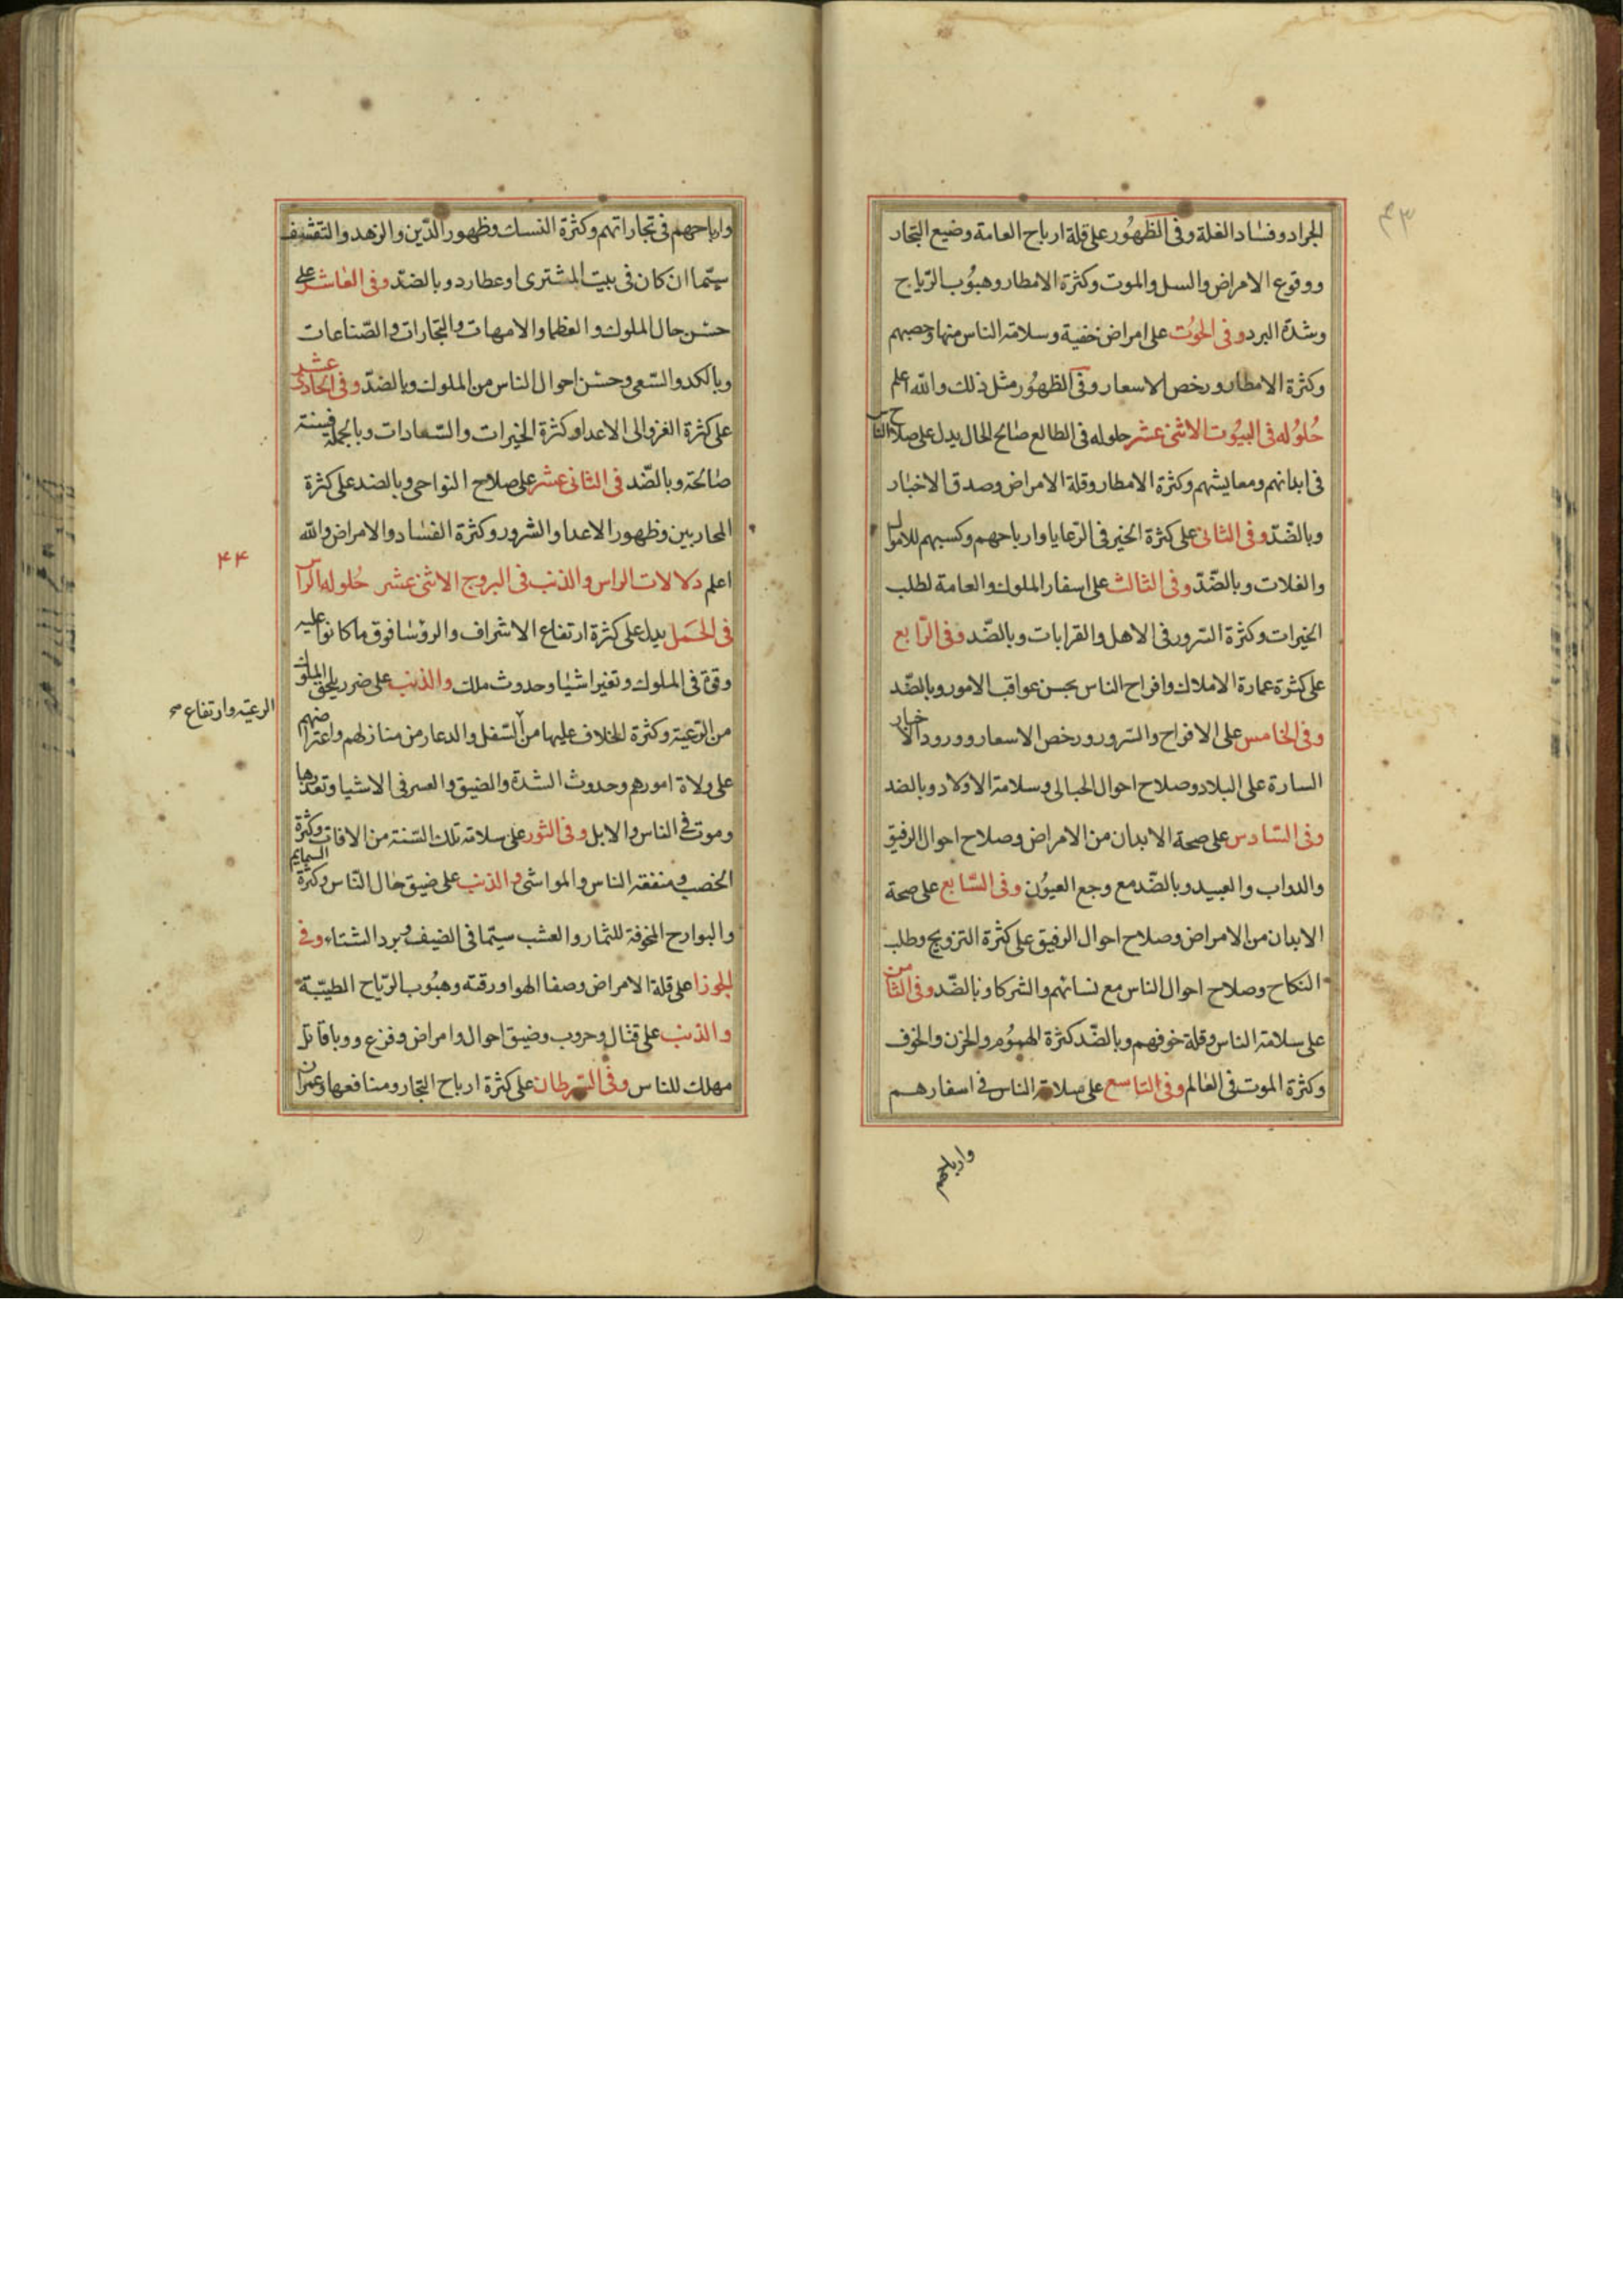 ٤٣
الجراد وفساد الغلة وفى الظهُور على قلة ارباح العامة وضيع التجار
ووقوع الامراض والسل والموت وكثرة الامطار وهبُوب الرّياح
وشدة البرد وفى الحوُت على امراض خفية وسلامة الناس منها وخصبهم
وكثرة الامطار ورخص الاسعار وفى الظهُور مثل ذلك والله اعلم
حُلوُله فى البيوُت الاثنى عشر حلوله فى الطالع صالح الحال يدل على صلاح الناس
فى ابدانهم ومعايشهم وكثرة الامطار وقلة الامراض وصدق الاخبار
وبالضّدّ وفى الثانى على كثرة الخير فى الرّعايا وارباحهم وكسبهم للاموال
والغلات وبالضّدّ وفى الثالث على اسفار الملوك والعامة لطلب
الخيرات وكثرة السّرور فى الاهل والقرابات وبالضّد وفى الرّابع
على كثرة عمارة الاملاك وافراح الناس بحسن عواقب الامور وبالضّد
وفى الخامس على الافراح والسّرور ورخص الاسعار وورود الاخبار
السارة على البلاد وصلاح احوال الحبالى وسلامة الاولاد وبالضد
وفى السّادس على صحة الابدان من الامراض وصلاح احوال الرفيق
والدواب والعبيد وبالضّد مع وجع العيوُن وفى السّابع على صحة
الابدان من الامراض وصلاح احوال الرفيق على كثرة التزويج وطلب
النكاح وصلاح احوال الناس مع نسائهم والشركا وبالضّد وفى الثامن
على سلامة الناس وقلة خوفهم وبالضّد كثرة الهموُم والحزن والخوف
وكثرة الموت فى العالم وفى التاسع على سلامة الناس فى اسفارهم
وارباحهم
وارباحهم فى تجاراتهم وكثرة النسك وظهور الدّين والزهد والتقشف
سيّما ان كان فى بيت المشترى او عطارد وبالضدّ وفى العاشر على
حسن حال الملوك والعظما والامهات والتجارات والصّناعات
وبالكد والسّعى وحسن احوال الناس من الملوك وبالضدّ وفى الحادى عشر
على كثرة الغزو الى الاعدا وكثرة الخيرات والسّعادات وبالجملة فسنة
صالحة وبالضّد فى الثانى عشر على صلاح النواحى وبالضد على كثرة
المحاربين وظهور الاعدا والشرور وكثرة الفساد والامراض والله
اعلم دلالات الراس والذنب فى البروج الاثنى عشر حُلوله الراس
فى الحَمَل يدل على كثرة ارتفاع الاشراف والروسا فوق ما كانوا عليه
وقوة فى الملوك وتغير اشيا وحدوث ملك والذنب على ضرر يلحق الملوك
من الرّعية وكثرة الخلاف عليها من السّفل والدعار من منازلهم واعتراضهم
الرعية وارتفاع صح
على ولاة امورهم وحدوث الشدة والضيق والعسر فى الاشيا وتعذرها
وموت فى الناس والابل وفى الثور على سلامة تلك السّنة من الافات وكثرة
الخصب ومنفعة الناس والمواشى والذنب على ضيق حال النّاس وكثرة السمايم
والبوارح المخوفة للثمار والعشب سيّما فى الصيف وبرد الشتاء وفى
الجوزا على قلة الامراض وصفا الهوا ورقته وهبُوب الرّياح الطيّبة
والذنب على قتال وحروب وضيق احوال وامراض وفزع ووبا قاتل
مهلك للناس وفى السّرطان على كثرة ارباح التجار ومنافعها وعمران
٤٤